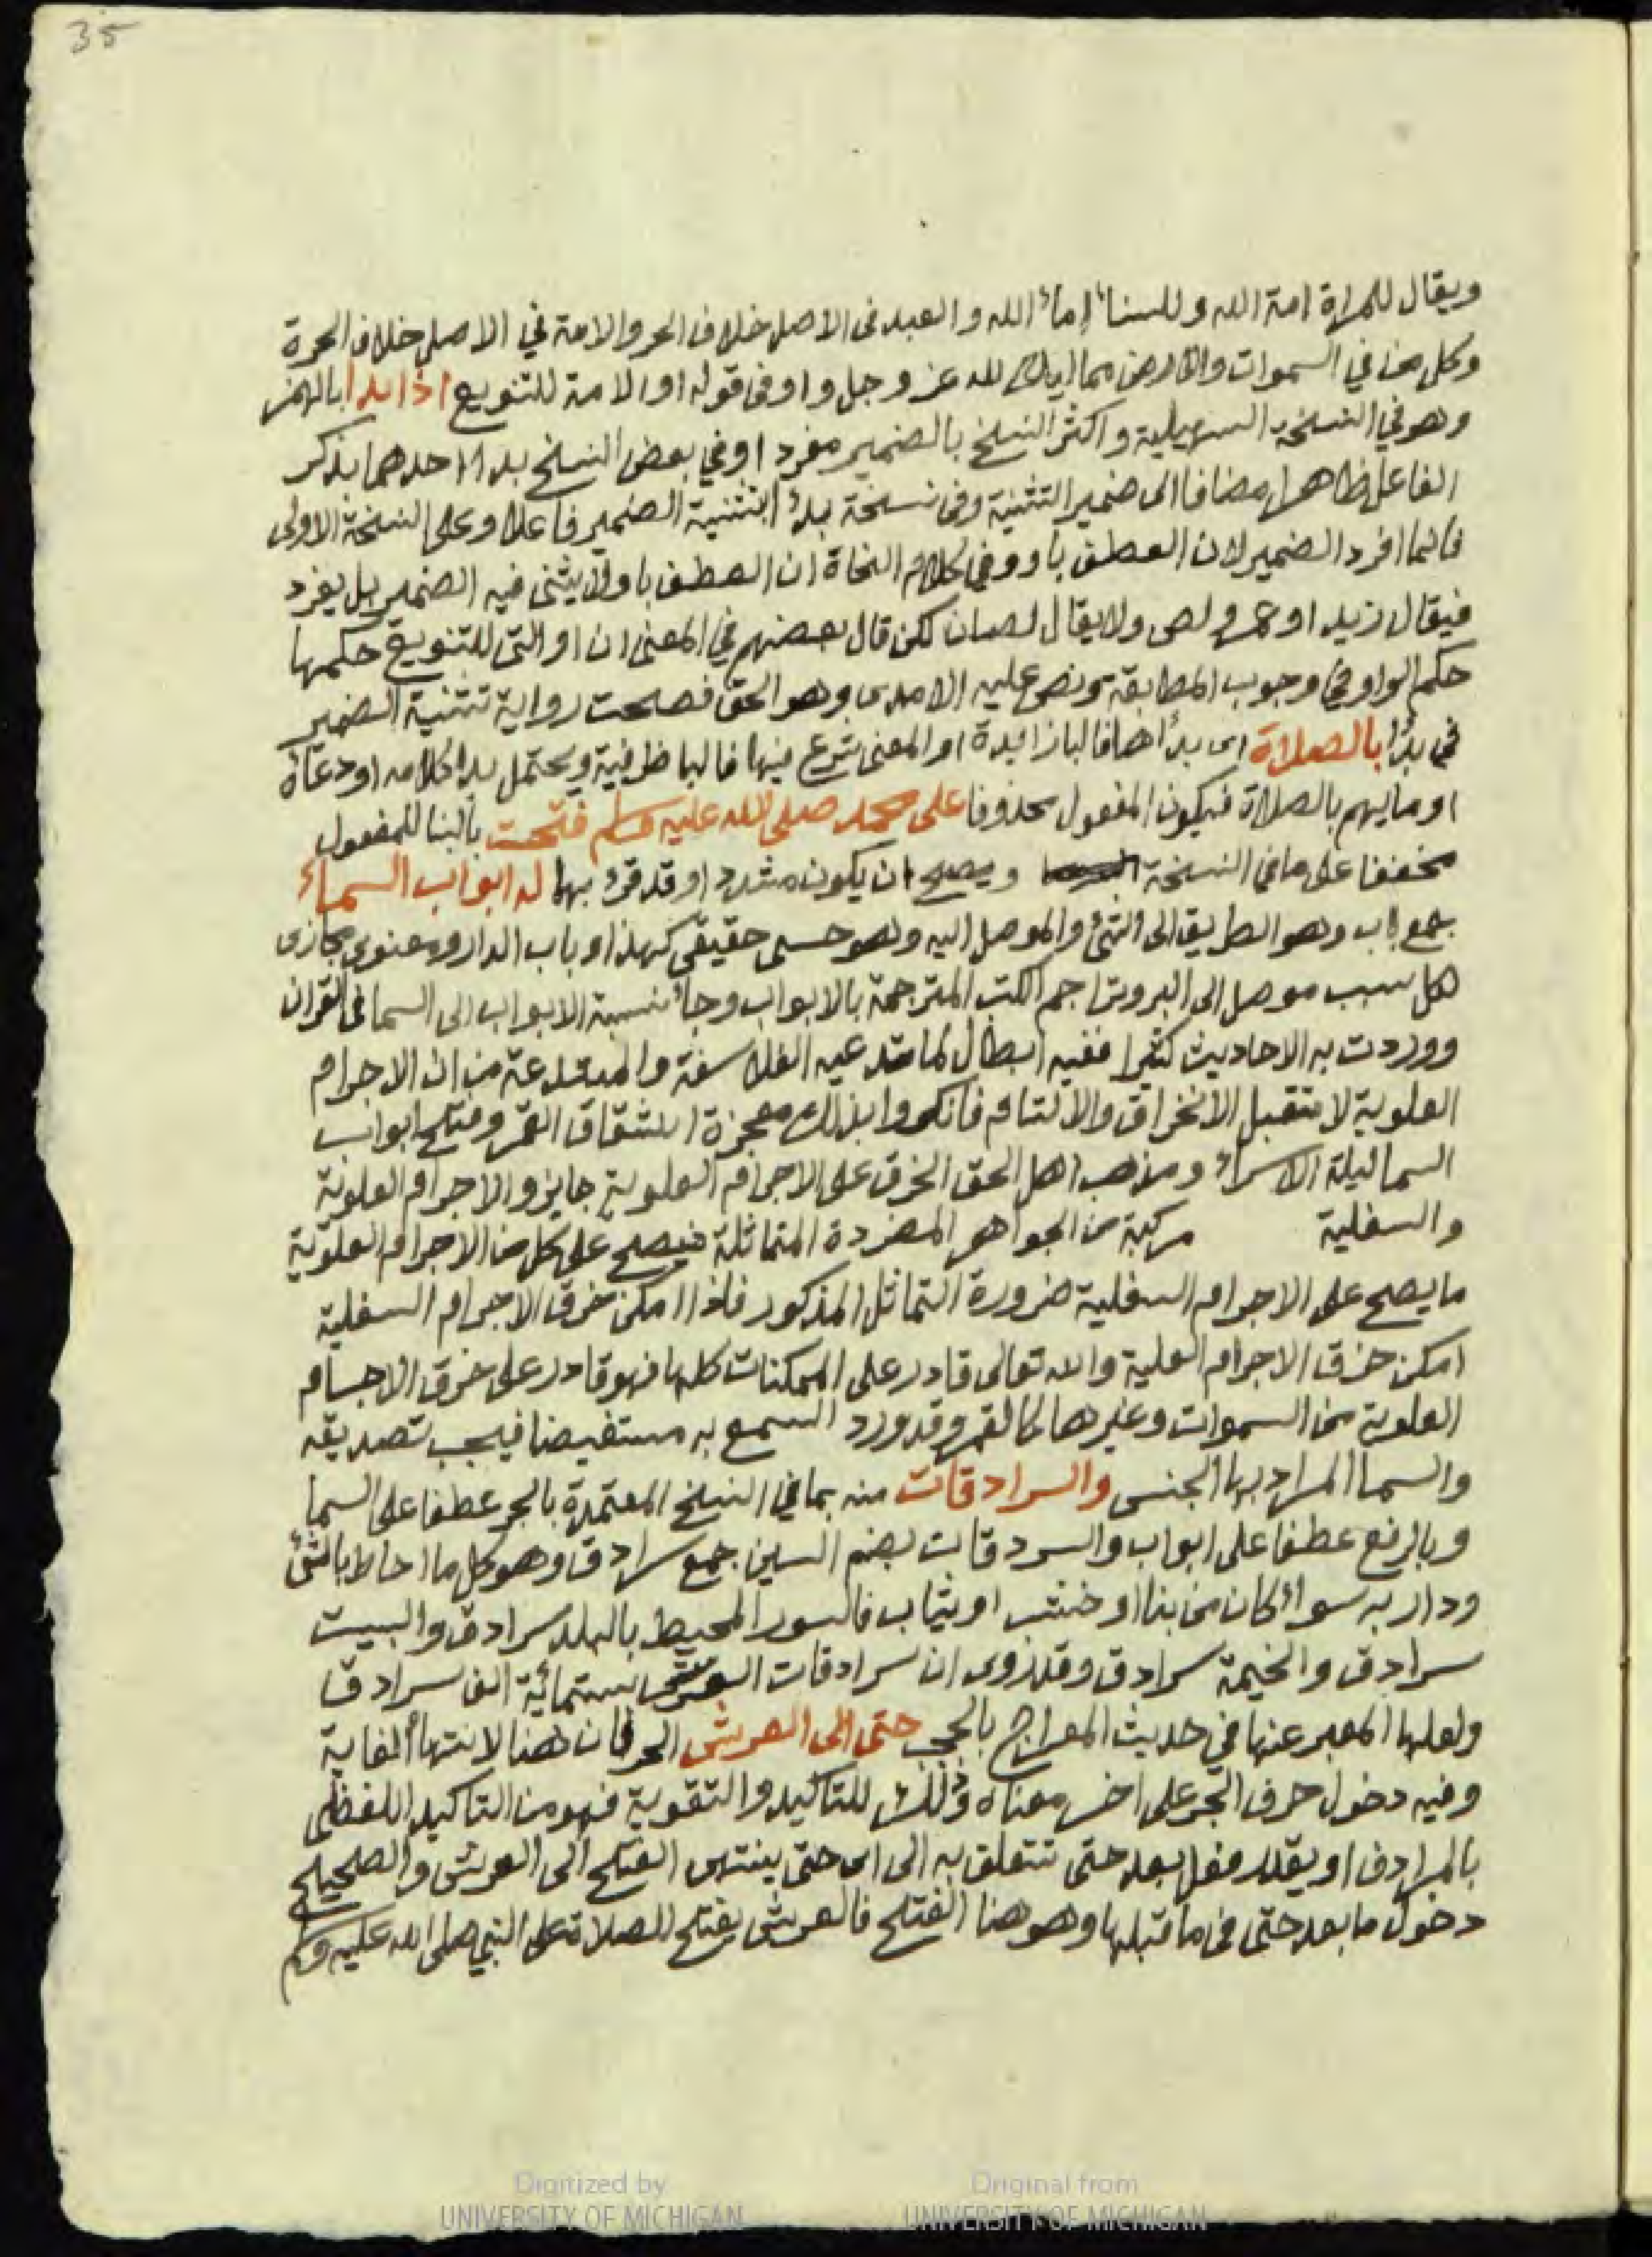 35
ويقال للمراة امة الله وللنسأ إمأ الله والعبد فى الاصل خلاف الحر والامة في الاصل خلاف الحرة
وكل من في السموات والارض مماليك لله عز وجل واو فى قوله او الامة للتنويع اذا بدا بالهمز
وهو في النسخة السهيلية واكثر النسخ بالضمير مفردا وفي بعض النسخ بدا احدهما بذكر
الفاعل ظاهرا مضافا الى ضمير التثنية وفى نسخة بدأ ابتثنية الضمير فاعلا وعلى النسخة الاولى
فانما افرد الضمير لان العطف باو وفي كلام النحاة ان العطف باو لا يثنى فيه الضمير بل يفرد
فيقال زيد او عمرو لص ولا يقال لصان لكن قال بعضهم في المغنى ان او التى للتنويع حكمها
حكم الواو في وجوب المطابقة ونص عليه الامدى وهو الحق فصحت رواية تثنية الضمير
في بدأ بالصلاة اى بدأها فالبا زايدة او المعنى شرع فيها فالبا ظرفية ويحتمل بدا كلامه او دعاة
او ما يهم بالصلاة فيكون المفعول محذوفا على محمد صلى الله عليه وسلم فتحت بالبنا للمفعول
مخففا على ما في النسخة ويصح ان يكون مشددا وقد قرئ بهما له ابواب السماء
جمع باب وهو الطريق الى الشئ والموصل اليه وهو حسى حقيقى كهذا وباب الدار ومعنوى مجازى
هكل سبب موصل الى البر وتراجم الكتب المترجمة بالابواب وجأ نسبة الابواب الى السما فى القران
ووردت به الاحاديث كثيرا ففيه ابطال لما تدعيه الفلاسفة والمبتدعة من ان الاجرام
العلوية لا تقبل الانخراق والالتئام فانكروا بذلك معجزة انشقاق القمر وفتح ابواب
السما ليلة الاسراء ومذهب اهل الحق الخرق على الاجرام العلوية جايز والاجرام العلوية
والسفلية مركبة من الجواهر المفردة المتماثلة فيصح على كل من الاجرام العلوية
ما يصح على الاجرام السفلية ضرورة التماثل المذكور فاذا امكن خرق الاجرام السفلية
امكن خرق الاجرام العلية والله تعالى قادر على الممكنات كلها فهو قادر على خرق الاجسام
العلوية من السموات وغيرها كالقمر وقد ورد السمع به مستفيضا فيجب تصديقه
والسما المراد بها الجنس والسرادقات منه بما في النسخ المعتمدة بالجر عطفا على السما
وبالرفع عطفا على ابواب والسردقات بضم السين جمع سرادق وهو كل ما احاط بالشئ
ودار به سواأ كان من بنا او خشب او ثياب فالسور المحيط بالبلد سرادق والبيت
سرادق والخيمة سرادق وقد روى ان سرادقات العرش ستمائة الف سرادق
ولعلها المعبر عنها في حديث المعراج بالحجب حتى الى العرش الحرفان هنا لانتها الغاية
وفيه دخول حرف الجر على اخر معناه وذلك للتاكيد والتقوية فهو من التاكيد اللفظى
بالمرادف او يقدر فعل بعد حتى تتعلق به الى اى حتى ينتهى الفتح الى العرش والصحيح
دخول ما بعد حتى فى ما قبلها وهو هنا الفتح فالعرش يفتح للصلاة على النبي صلى الله عليه وسلم
Digitized by
UNIVERSITY OF MICHIGAN
Original from
UNIVERSITY OF MICHIGAN